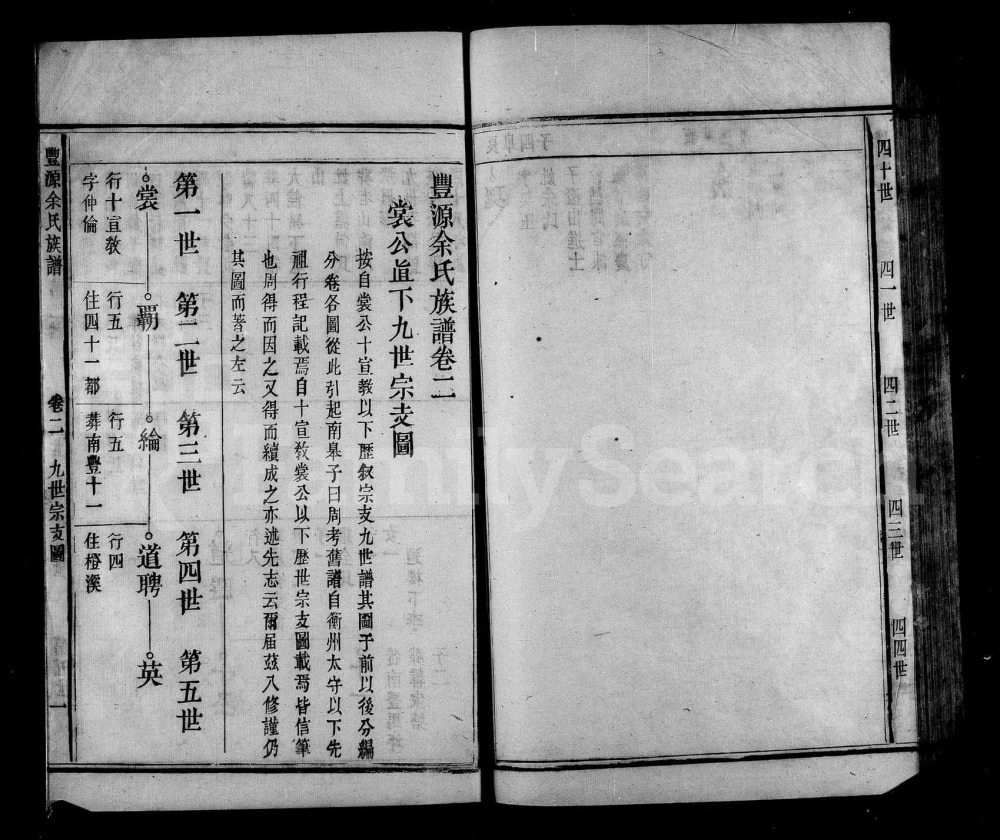 四十世
四一世
四二世
四三世
四四世
豐源余氏族譜卷二
裳公直下九世宗支圖
按自裳公十宣教以下歷叙宗支九世譜其圖于前以後分編
分卷各圖從此引起南皋子曰周考舊譜自衡州太守以下先
祖行程記載焉自十宣教裳公以下歷世宗支圖載焉皆信筆
也周得而因之又得而續成之亦述先志云爾屆茲八修謹仍
其圖而著之左云
第一世 第二世 第三世 第四世 第五世
裳 霸 綸 道聘 英
行十宣教 行五 行五 行四
字仲倫 住四十一都 葬南豐十一 住橙溪
豐源余氏族譜 卷二 九世宗支圖 一
FamilySearch